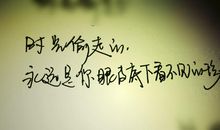 时光偷走的
永远是你眼皮底下看不见的珍